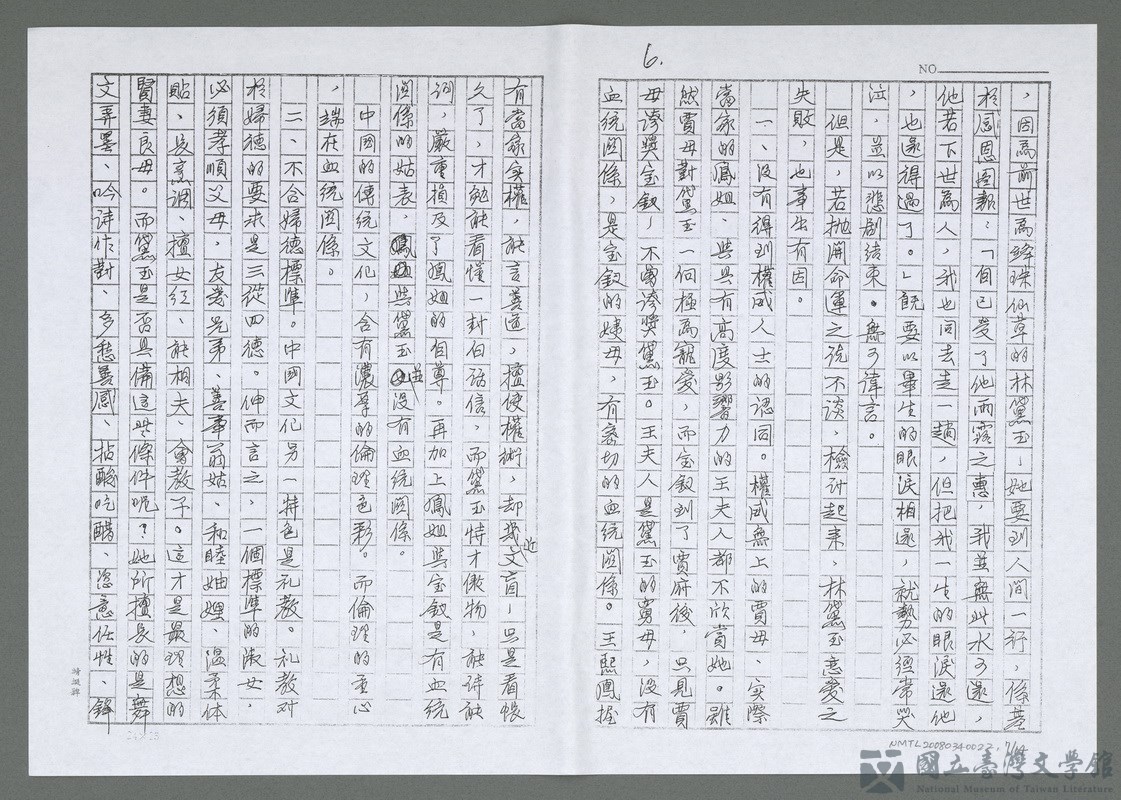 6.
NO.
，因為前世為絳珠仙草的林黛玉，她要到人間一行，係基
於感恩圖報：「自己受了他雨露之惠，我並無此水可還，
他若下世為人，我也同去走一趟，但把我一生的眼淚還他
，也還得過了。」既要以畢生的眼淚相還，就勢必經常哭
泣，並以悲劇結束。無可諱言。
但是，若拋開命運之說不談，檢討起來，林黛玉戀愛之
失敗，也事出有因。
一、沒有得到權威人士的認同。權威無上的賈母、實際
當家的鳳姐、與具有高度影響力的王夫人都不欣賞她。雖
然賈母對黛玉一向極為寵愛，而宝釵到了賈府後，只見賈
母誇獎宝釵，不曾誇獎黛玉。王夫人是黛玉的舅母，沒有
血統關係，是宝釵的姨母，有密切的血統關係。王熙鳳握
有當家实權，能言善道，擅使權術，却幾近文盲，只是看帳
久了，才勉能看懂一封白話信，而黛玉恃才傲物，能詩能
詞，嚴重損及了鳳姐的自尊。再加上鳳姐與宝釵是有血統
關係的姑表，與黛玉並沒有血統關係。
中國的傳統文化，含有濃厚的倫理色彩。而倫理的重心
，端在血統關係。
二、不合婦德標準。中國文化另一特色是礼教。礼教对
於婦德的要求是三從四德。伸而言之，一個標準的淑女，
必須孝順父母，友愛兄弟、善事翁姑、和睦妯娌、溫柔体
貼、長烹調、擅女红、能相夫、會教子。這才是最理想的
賢妻良母。而黛玉是否具備這些條件呢？她所擅長的是舞
文弄墨、吟诗作對、多愁善感、拈酸吃醋、恣意任性、鋒
24×25
NMTL20080340022, 7/14
國立臺灣文學館
National Museum of Taiwan Literature